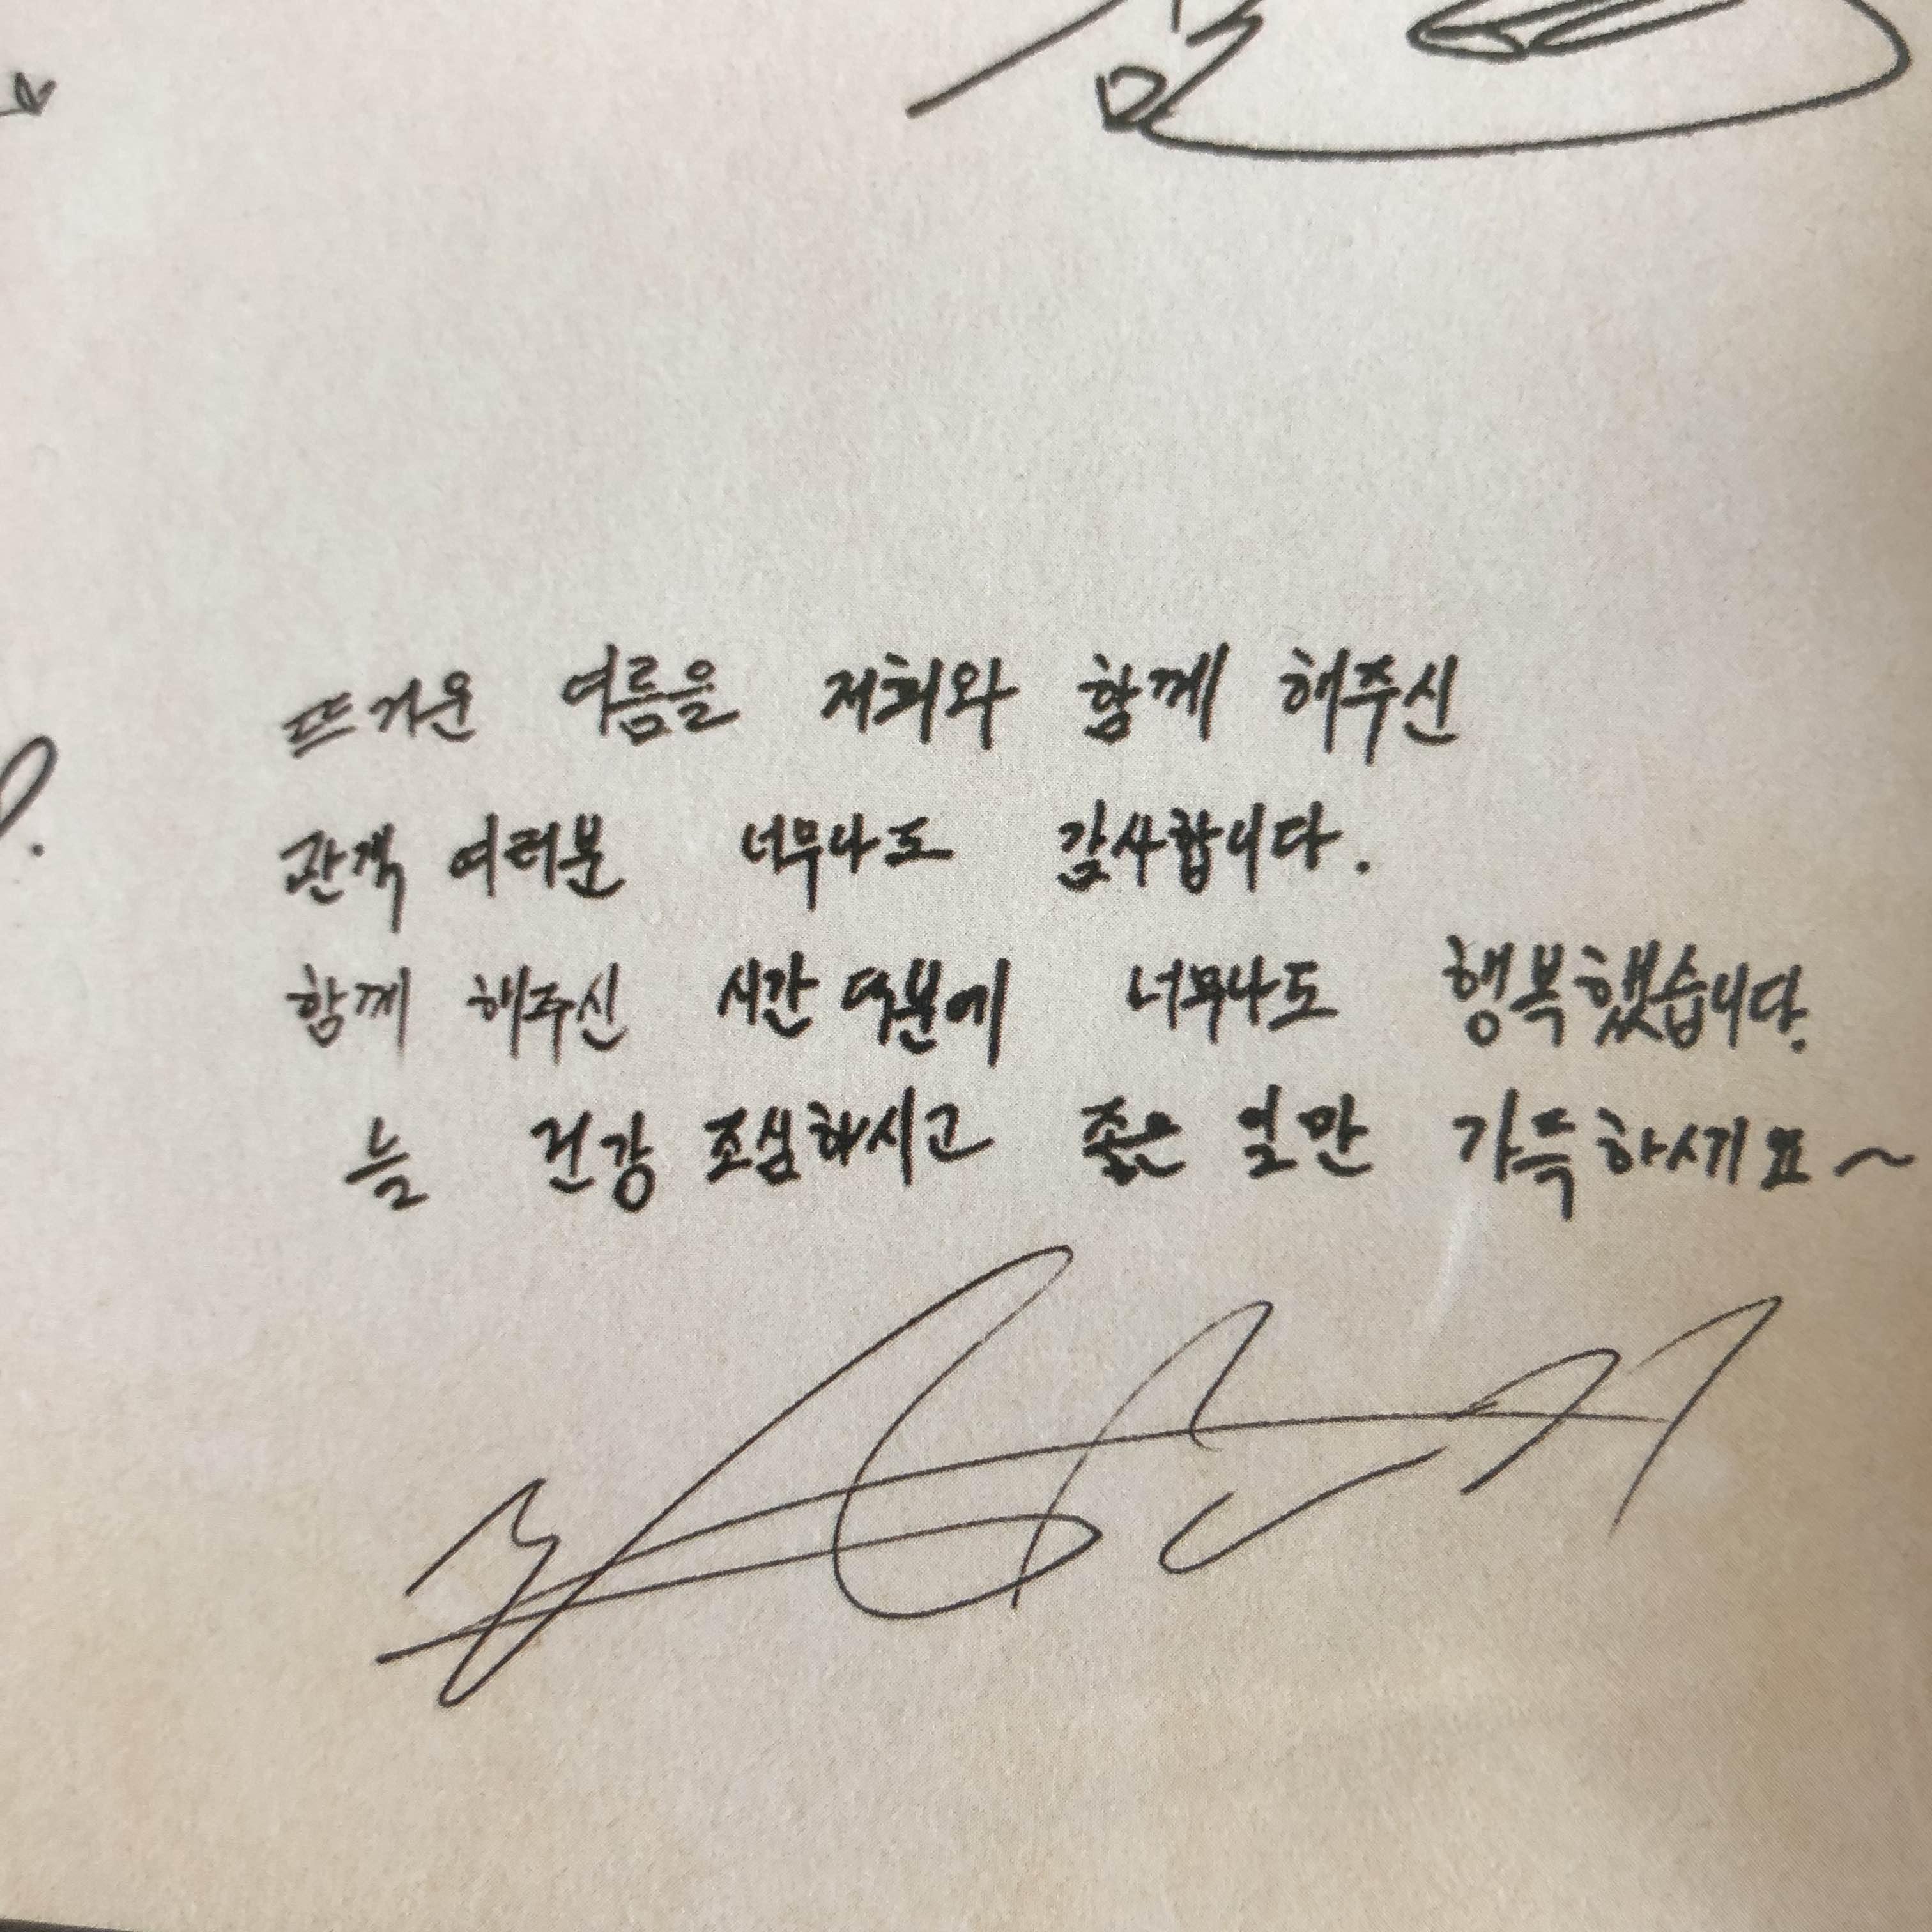 뜨거운 여름을 저희와 함께 해주신
관객 여러분 너무나도 감사합니다.
함께 해주신 시간 덕분에 너무나도 행복했습니다.
늘 건강 조심하시고 좋은 일만 가득하세요~